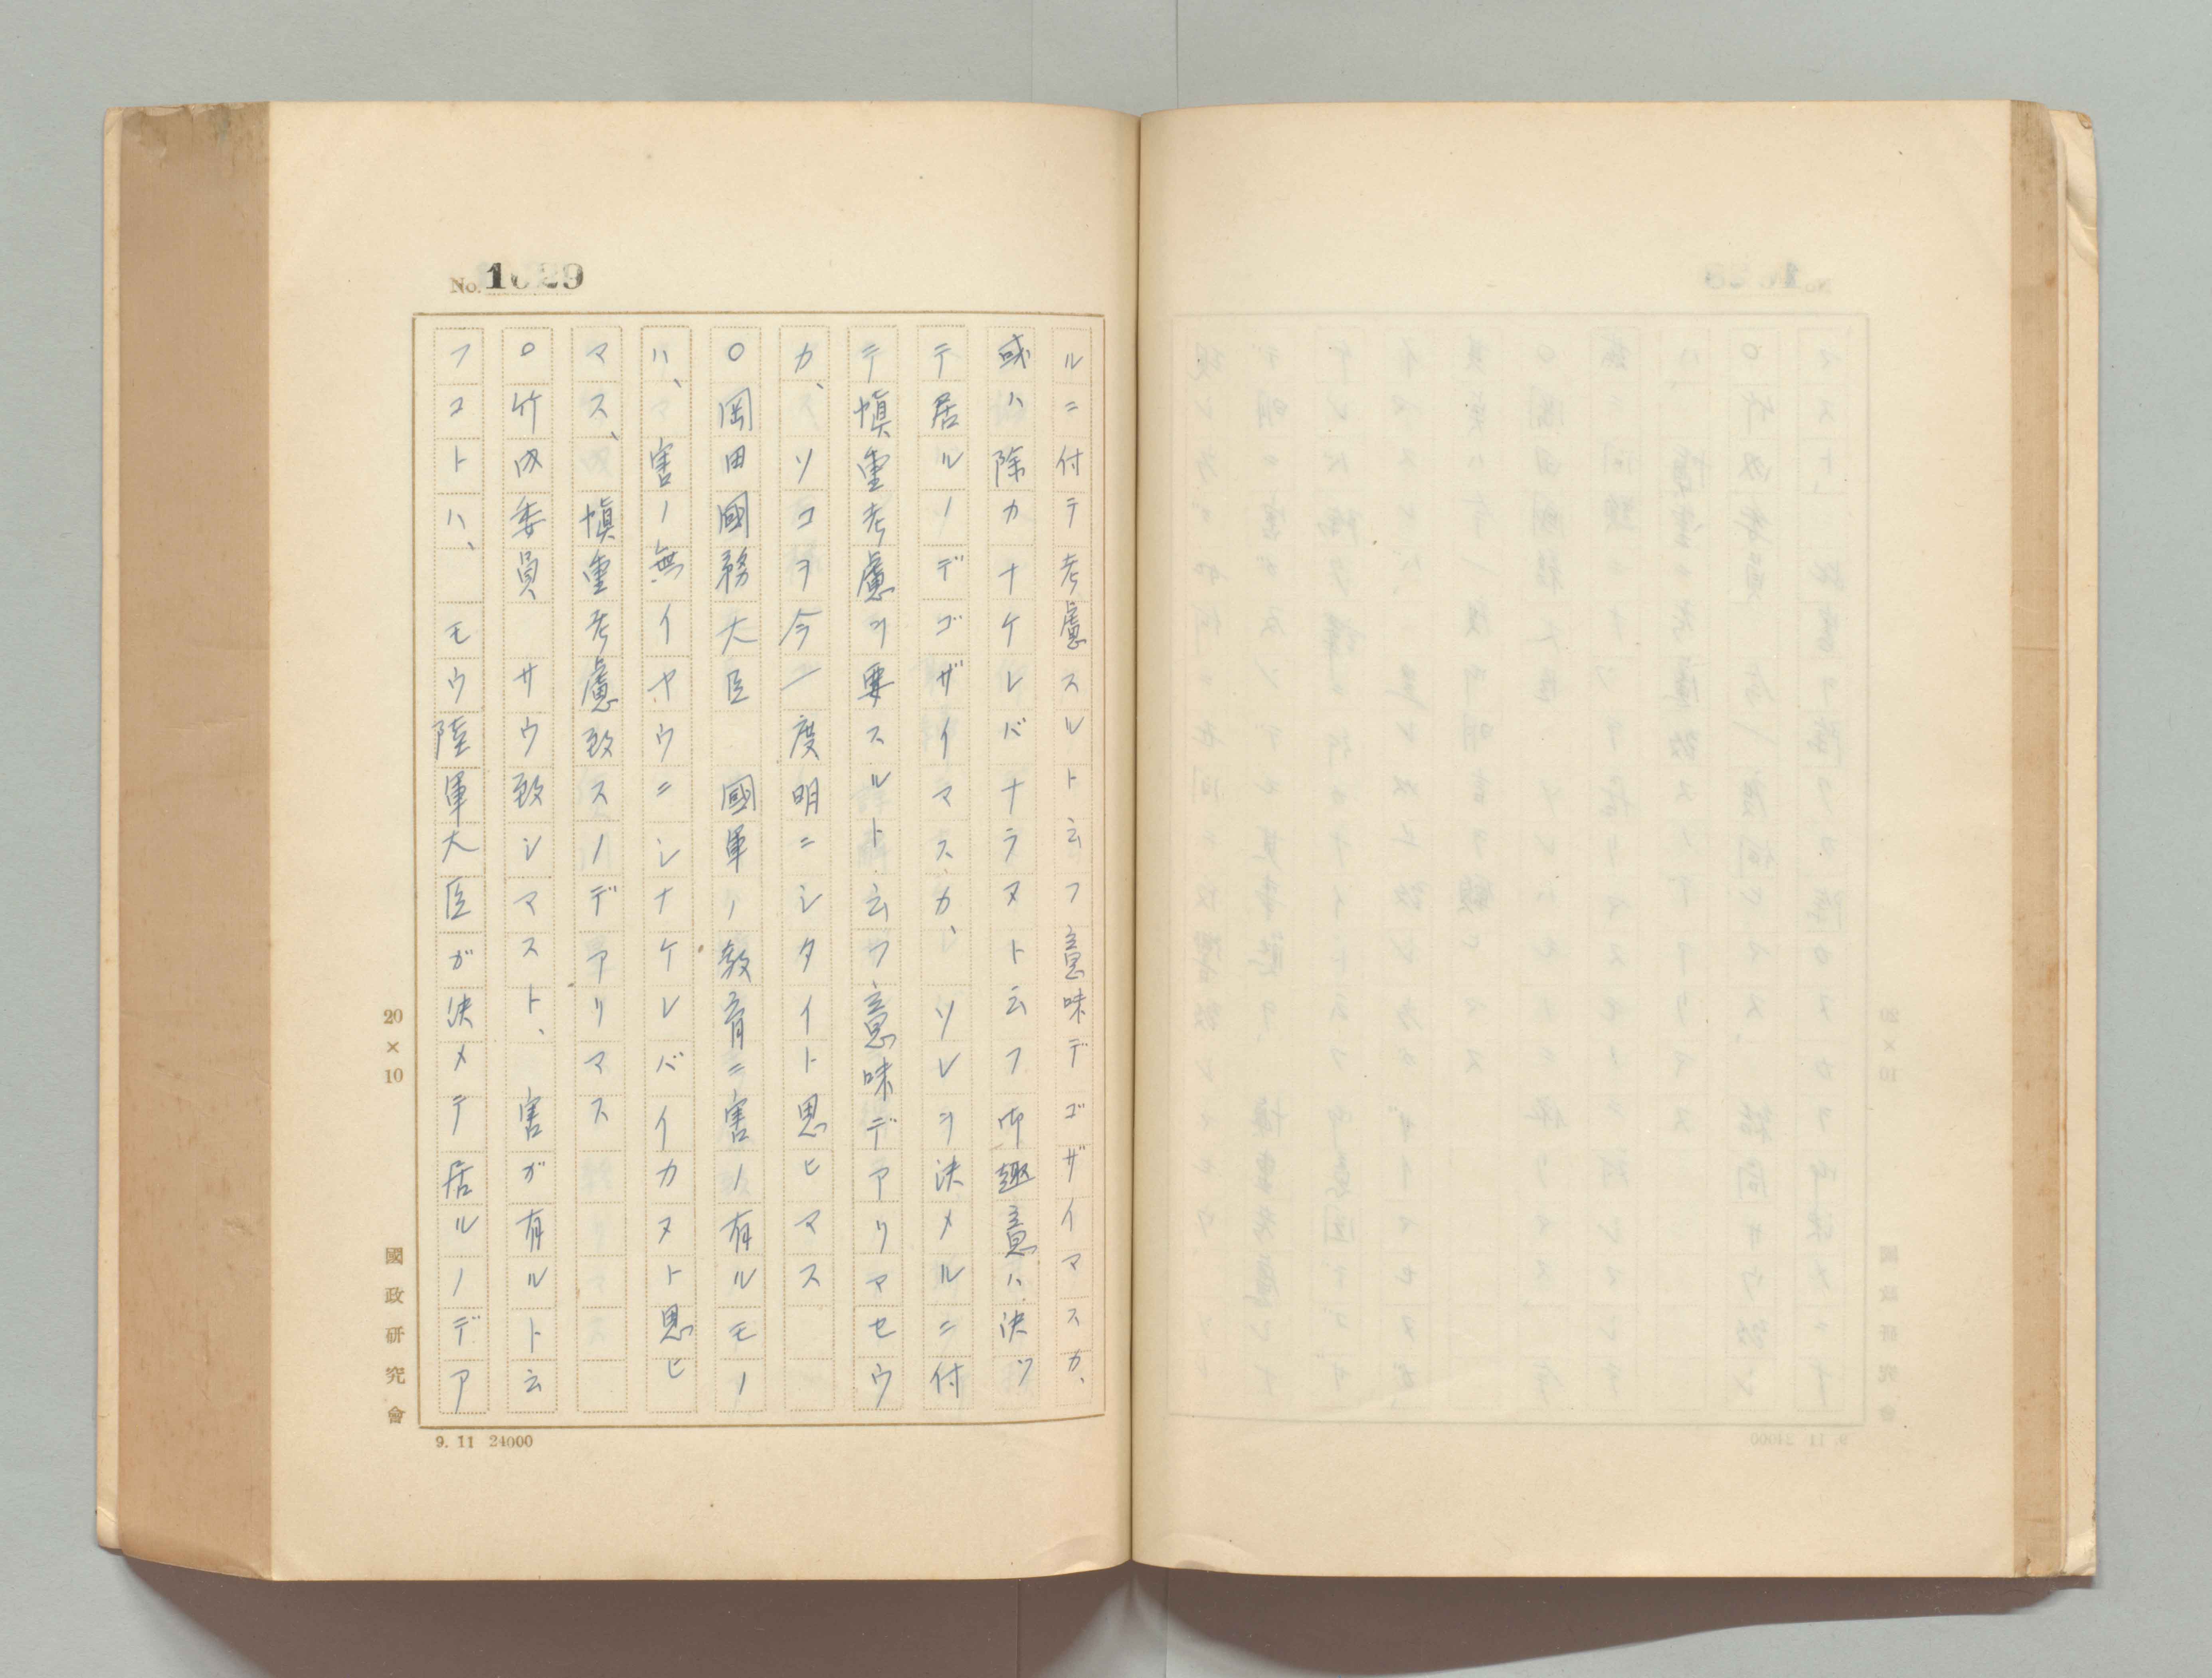 No. 1029
ルニ付テ考慮スルト云フ意味デゴザイマスカ、
或ハ除カナケレバナラヌト云フ御趣意ハ決ツ
テ居ルノデゴザイマスカ、ソレヲ決メルニ付
テ愼重考慮ヲ要スルト云フ意味デアリマセウ
カ、ソコヲ今一度明ニシタイト思ヒマス
○岡田國務大臣 國軍ノ教育ニ害ノ有ルモノ
ハ、害ノ無イヤウニシナケレバイカヌト思ヒ
マス、愼重考慮致スノデアリマス
○竹内委員 サウ致シマスト、害ガ有ルト云
フコトハ、モウ陸軍大臣ガ決メテ居ルノデア
20×10
國政研究會
9. 11 24000